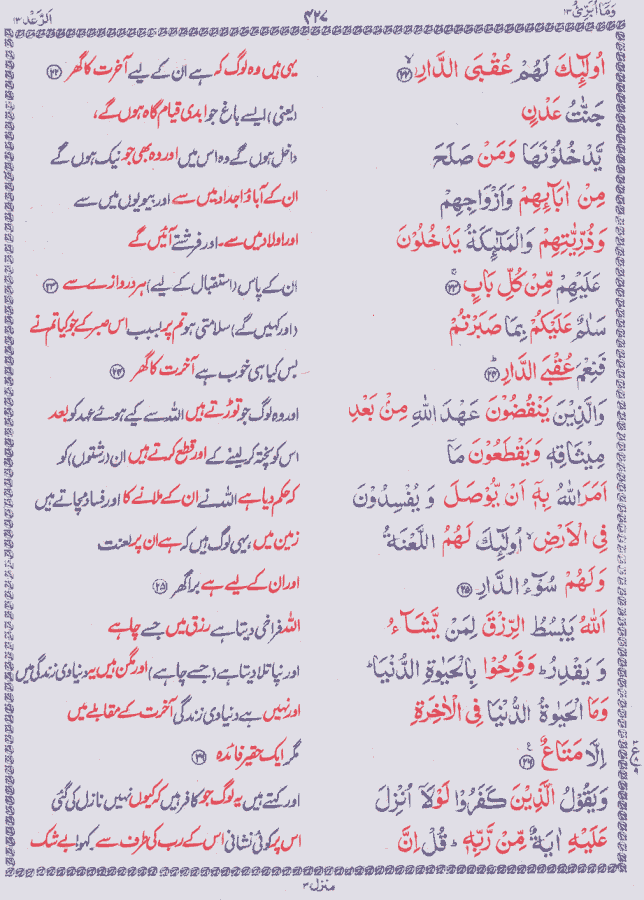 وَمَآ اُبَرِّئُ ١٣
٤٢٧
اَلرَّعْد ١٣
اُولٰٓئِكَ لَهُمْ عُقْبَى الدَّارِ ﴿۲۲﴾
یہی ہیں وہ لوگ کہ ہے ان کے لیے آخرت کا گھر ﴿۲۲﴾
جَنّٰتُ عَدْنٍ
(یعنی) ایسے باغ جو ابدی قیام گاہ ہوں گے،
يَّدْخُلُوْنَهَا وَمَنْ صَلَحَ
داخل ہوں گے وہ اس میں اور وہ بھی جو نیک ہوں گے
مِنْ اٰبَآئِهِمْ وَاَزْوَاجِهِمْ
ان کے آباؤ اجداد میں سے اور بیویوں میں سے
وَذُرِّيّٰتِهِمْ وَالْمَلٰٓئِكَةُ يَدْخُلُوْنَ
اور اولاد میں سے۔ اور فرشتے آئیں گے
عَلَيْهِمْ مِّنْ كُلِّ بَابٍ ﴿۲۳﴾
ان کے پاس (استقبال کے لیے) ہر دروازے سے ﴿۲۳﴾
سَلٰمٌ عَلَيْكُمْ بِمَا صَبَرْتُمْ
(اور کہیں گے) سلامتی ہو تم پر بسبب اس صبر کے جو کیا تم نے
فَنِعْمَ عُقْبَى الدَّارِ ﴿۲۴﴾
بس کیا ہی خوب ہے آخرت کا گھر ﴿۲۴﴾
وَالَّذِيْنَ يَنْقُضُوْنَ عَهْدَ اللهِ مِنْ بَعْدِ
اور وہ لوگ جو توڑتے ہیں اللہ سے کیے ہوئے عہد کو بعد
مِيْثَاقِهٖ وَيَقْطَعُوْنَ مَآ
اس کو پختہ کر لینے کے اور قطع کرتے ہیں ان (رشتوں) کو
اَمَرَ اللهُ بِهٖٓ اَنْ يُّوْصَلَ وَ يُفْسِدُوْنَ
کہ حکم دیا ہے اللہ نے ان کے ملانے کا اور فساد مچاتے ہیں
فِى الْاَرْضِ ۙ اُولٰٓئِكَ لَهُمُ اللَّعْنَةُ
زمین میں، یہی لوگ ہیں کہ ہے ان پر لعنت
وَلَهُمْ سُوْٓءُ الدَّارِ ﴿۲۵﴾
اور ان کے لیے ہے برا گھر ﴿۲۵﴾
اَللهُ يَبْسُطُ الرِّزْقَ لِمَنْ يَّشَآءُ
اللہ فراخی دیتا ہے رزق میں جسے چاہے
وَ يَقْدِرُ ؕ وَفَرِحُوْا بِالْحَيٰوةِ الدُّنْيَا ؕ
اور نپا تلا دیتا ہے (جسے چاہے) اور مگن ہیں یہ دنیاوی زندگی میں
وَمَا الْحَيٰوةُ الدُّنْيَا فِى الْاٰخِرَةِ
اور نہیں ہے دنیاوی زندگی آخرت کے مقابلے میں
اِلَّا مَتَاعٌ ﴿۲۶﴾
مگر ایک حقیر فائدہ ﴿۲۶﴾
وَيَقُوْلُ الَّذِيْنَ كَفَرُوْا لَوْلَآ اُنْزِلَ
اور کہتے ہیں یہ لوگ جو کافر ہیں کہ کیوں نہیں نازل کی گئی
عَلَيْهِ اٰيَةٌ مِّنْ رَّبِّهٖ ؕ قُلْ اِنَّ
اس پر کوئی نشانی اس کے رب کی طرف سے کہو! بے شک
منزل ٣